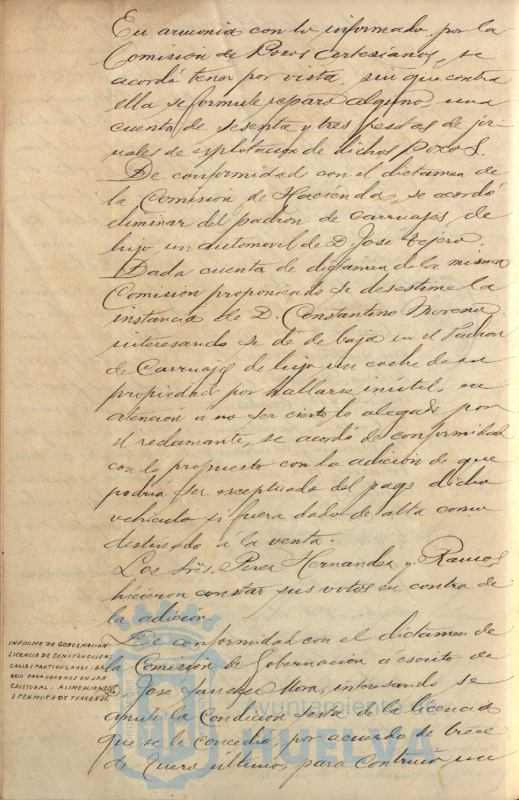 En armonía con lo informado por la
Comisión de Pozos Artesianos, se
acordó tener por vista, sin que contra
ella se formule reparo alguno, una
cuenta de sesenta y tres pesetas de jor-
nales de explotación de dichos pozos.
De conformidad con el dictamen de
la Comisión de Hacienda, se acordó
eliminar del padrón de carruajes de
lujo, un automóvil de D. José Tejero.
Dada cuenta de dictamen de la misma
Comisión proponiendo se desestime la
instancia de D. Constantino Moreno
interesando se dé de baja en el Padrón
de Carruajes de lujo un coche de su
propiedad por hallarse inútil, en
atención á no ser cierto lo alegado por
el reclamante, se acordó de conformidad
con lo propuesto con la adición de que
podría ser exceptuado del pago dicho
vehículo si fuera dado de alta como
destinado a la venta.
Los Sres. Perez Hernandez y Ramos
hicieron constar sus votos en contra de
la adición.
De conformidad con el dictamen de
la Comisión de Gobernación a escrito de
José Sanchez Mora, interesando se
anule la condición sexta de la licencia
que se le concedió, por acuerdo de trece
de Enero último, para construir un
INFORME DE GOBERNACION:
LICENCIA DE CONSTRUCCION
CALLES PARTICULARES: BA-
RRIO PARA OBREROS EN SAN
CRISTOBAL: ALINEACIONES
Y PERMUTA DE TERRENOS
Ayuntamiento de
HUELVA